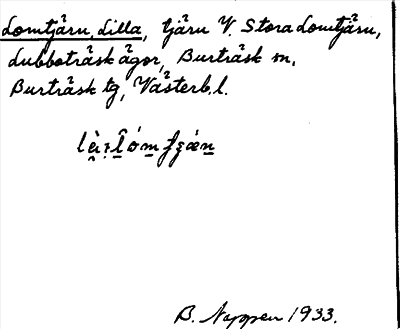 Lomtjärn, Lilla, tjärn V. Stora Lomtjärn,
Lubboträsk ägor, Burträsk sn,
Burträsk tg, Västerb. l.
B. Noppen 1933.